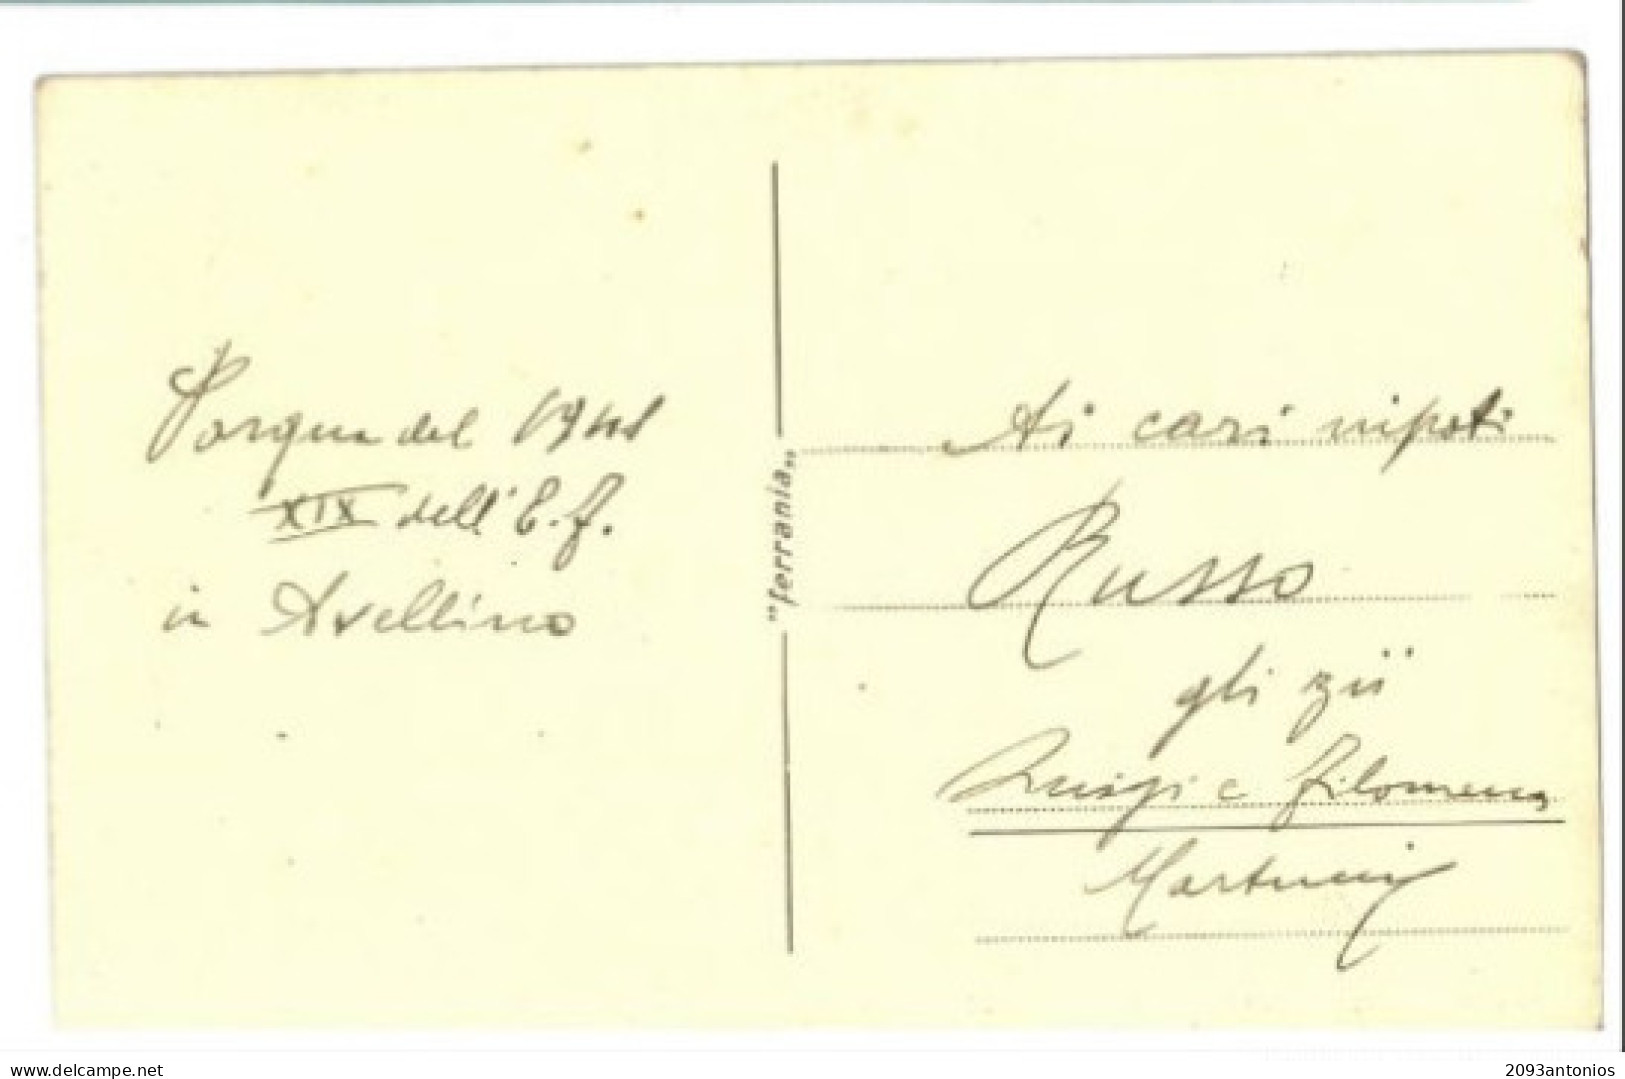 Pasqua del 1941
XIX dell'E.F.
in Avellino
"ferrania"
Ai cari nipoti
Russo
gli zii
Luigi e Filomena
Martucci
www.delcampe.net
2093antonios